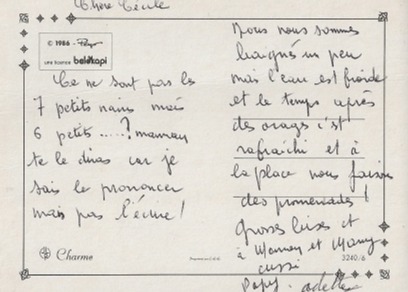 Chère Cécile
© 1986 - Peyo
une licence belokapi
Ce ne sont pas les
7 petits nains mais
6 petits .....? maman
te le diras car je
sais le prononcer
mais pas l'écrire!
Nous nous sommes
baignés un peu
mais l'eau est froide
et le temps après
des orages s'est
rafraîchi et à
la place nous faisons
des promenades!
grosses bises et
à Mamey et Mamy
aussi
Papy. Odette
Charme
3240/6